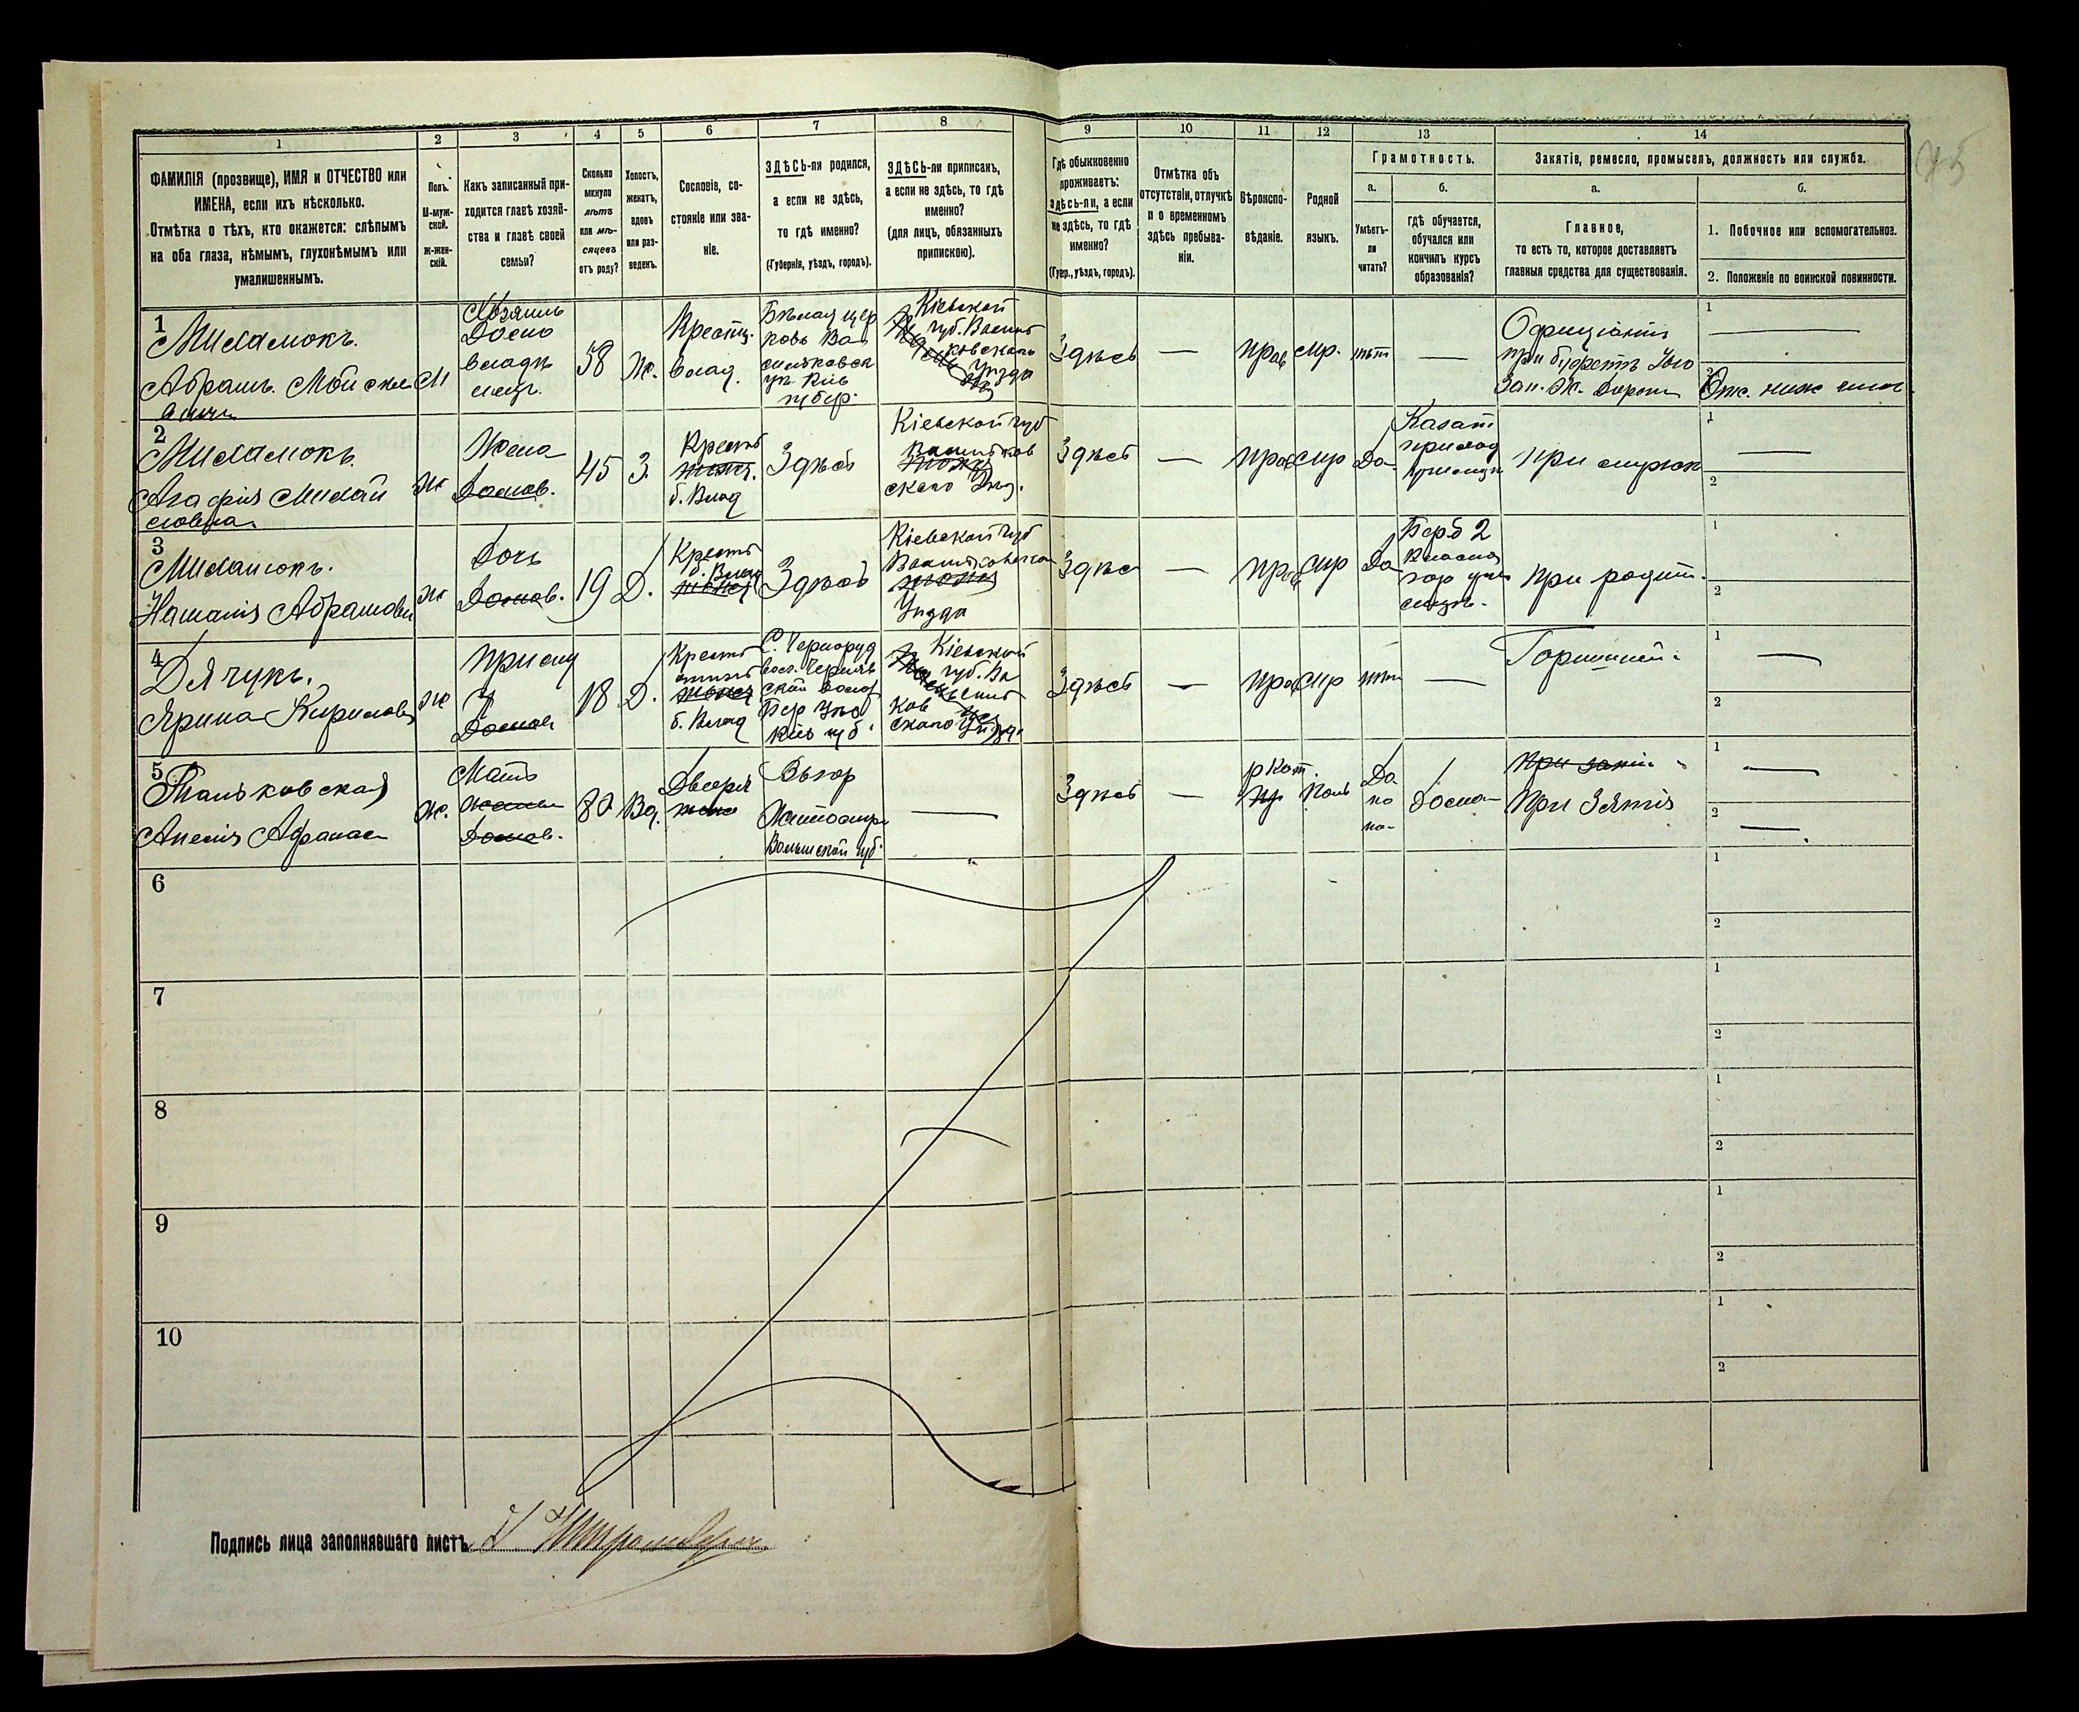 1
2
3
4
5
6
7
8
9
10
11
12
13
14
ФАМИЛІЯ (прозвище), ИМЯ и ОТЧЕСТВО или
ИМЕНА, если ихъ нѣсколько.
Отмѣтка о тѣхъ, кто окажется: слѣпымъ
на оба глаза, нѣмымъ, глухонѣмымъ или
умалишеннымъ.
Полъ.
М-муж-
ской.
ж-жен-
скій.
Какъ записанный при-
ходится главѣ хозяй-
ства и главѣ своей
семьи?
Сколько
минуло
лѣтъ
или мѣ-
сяцевъ
отъ роду?
Холостъ,
женатъ,
вдовъ
или раз-
веденъ.
Сословіе, со-
стояніе или зва-
ніе.
ЗДѢСЬ-ли родился,
а если не здѣсь,
то гдѣ именно?
(Губернія, уѣздъ, городъ).
ЗДѢСЬ-ли приписанъ,
а если не здѣсь, то гдѣ
именно?
(для лицъ, обязанныхъ
припискою).
Гдѣ обыкновенно
проживаетъ:
здѣсь-ли, а если
не здѣсь, то гдѣ
именно?
(Губер., уѣздъ, городъ).
Отмѣтка объ
отсутствіи, отлучкѣ
и о временномъ
здѣсь пребыва-
ніи.
Вѣроиспо-
вѣданіе.
Родной
языкъ.
Грамотность.
а.
Умѣетъ-
ли
читать?
б.
гдѣ обучается,
обучался или
кончилъ курсъ
образованія?
Занятіе, ремесло, промыселъ, должность или служба.
а.
Главное,
то есть то, которое доставляетъ
главныя средства для существованія.
б.
1. Побочное или вспомогательное.
2. Положеніе по воинской повинности.
1
Михалюкъ.
Абрамъ Мойсие
вичъ
М
Хозяинъ
Домо
владѣ
лецъ.
58
Ж.
Крестц.
влад.
Бѣлая цер
ковь Ва
сильковск
уѣ. Кіев
губер.
Кіевской
губ. Василь
ковскаго
Уѣзда
Здѣсь
—
прав
мр.
нѣт
—
Офиціантъ
при буфетѣ Юго
Зап. Ж. дороги
1
2
Отс. ниж чинъ
2
Михалюкъ.
Агафія Михай
ловна
ж
Жена
Домов.
45
З.
Крестб
б. Влад
Здѣсь
Кіевской губ
Васильков
скаго Уѣз.
Здѣсь
—
прав
мр
Да
Казат
приход
Училищ
при мужѣ
1
2
3
Михалюкъ.
Наталія Абрамовн
ж
Дочь
Домов.
19
Д.
Крестб
б. Влад
Здѣсь
Кіевской губ
Васильковскаго
Уѣзда
Здѣс
—
прав
мр
Да
Берд 2
Класна
гор учи
лищѣ.
при родит.
1
2
4
Дячукъ.
Ярина Кирилов
ж
прислу
Домов
18
Д.
б. Влад
С. Черноруд
Кіев губ.
Кіевской
губ. Ва
силь
ков
скаго Уѣзда
Здѣсь
—
прав
мр
нѣт
—
Горничней.
1
2
5
Анелія Афанас
ж.
Мать
Домов.
80
Вд.
Дворя
Житомир
Волынской губ.
—
Здѣсь
—
р Кат.
Поль
Да
по
по-
дома
При зятѣ
1
2
6
1
2
7
1
2
8
1
2
9
1
2
10
1
2
Подпись лица заполнявшаго листъ